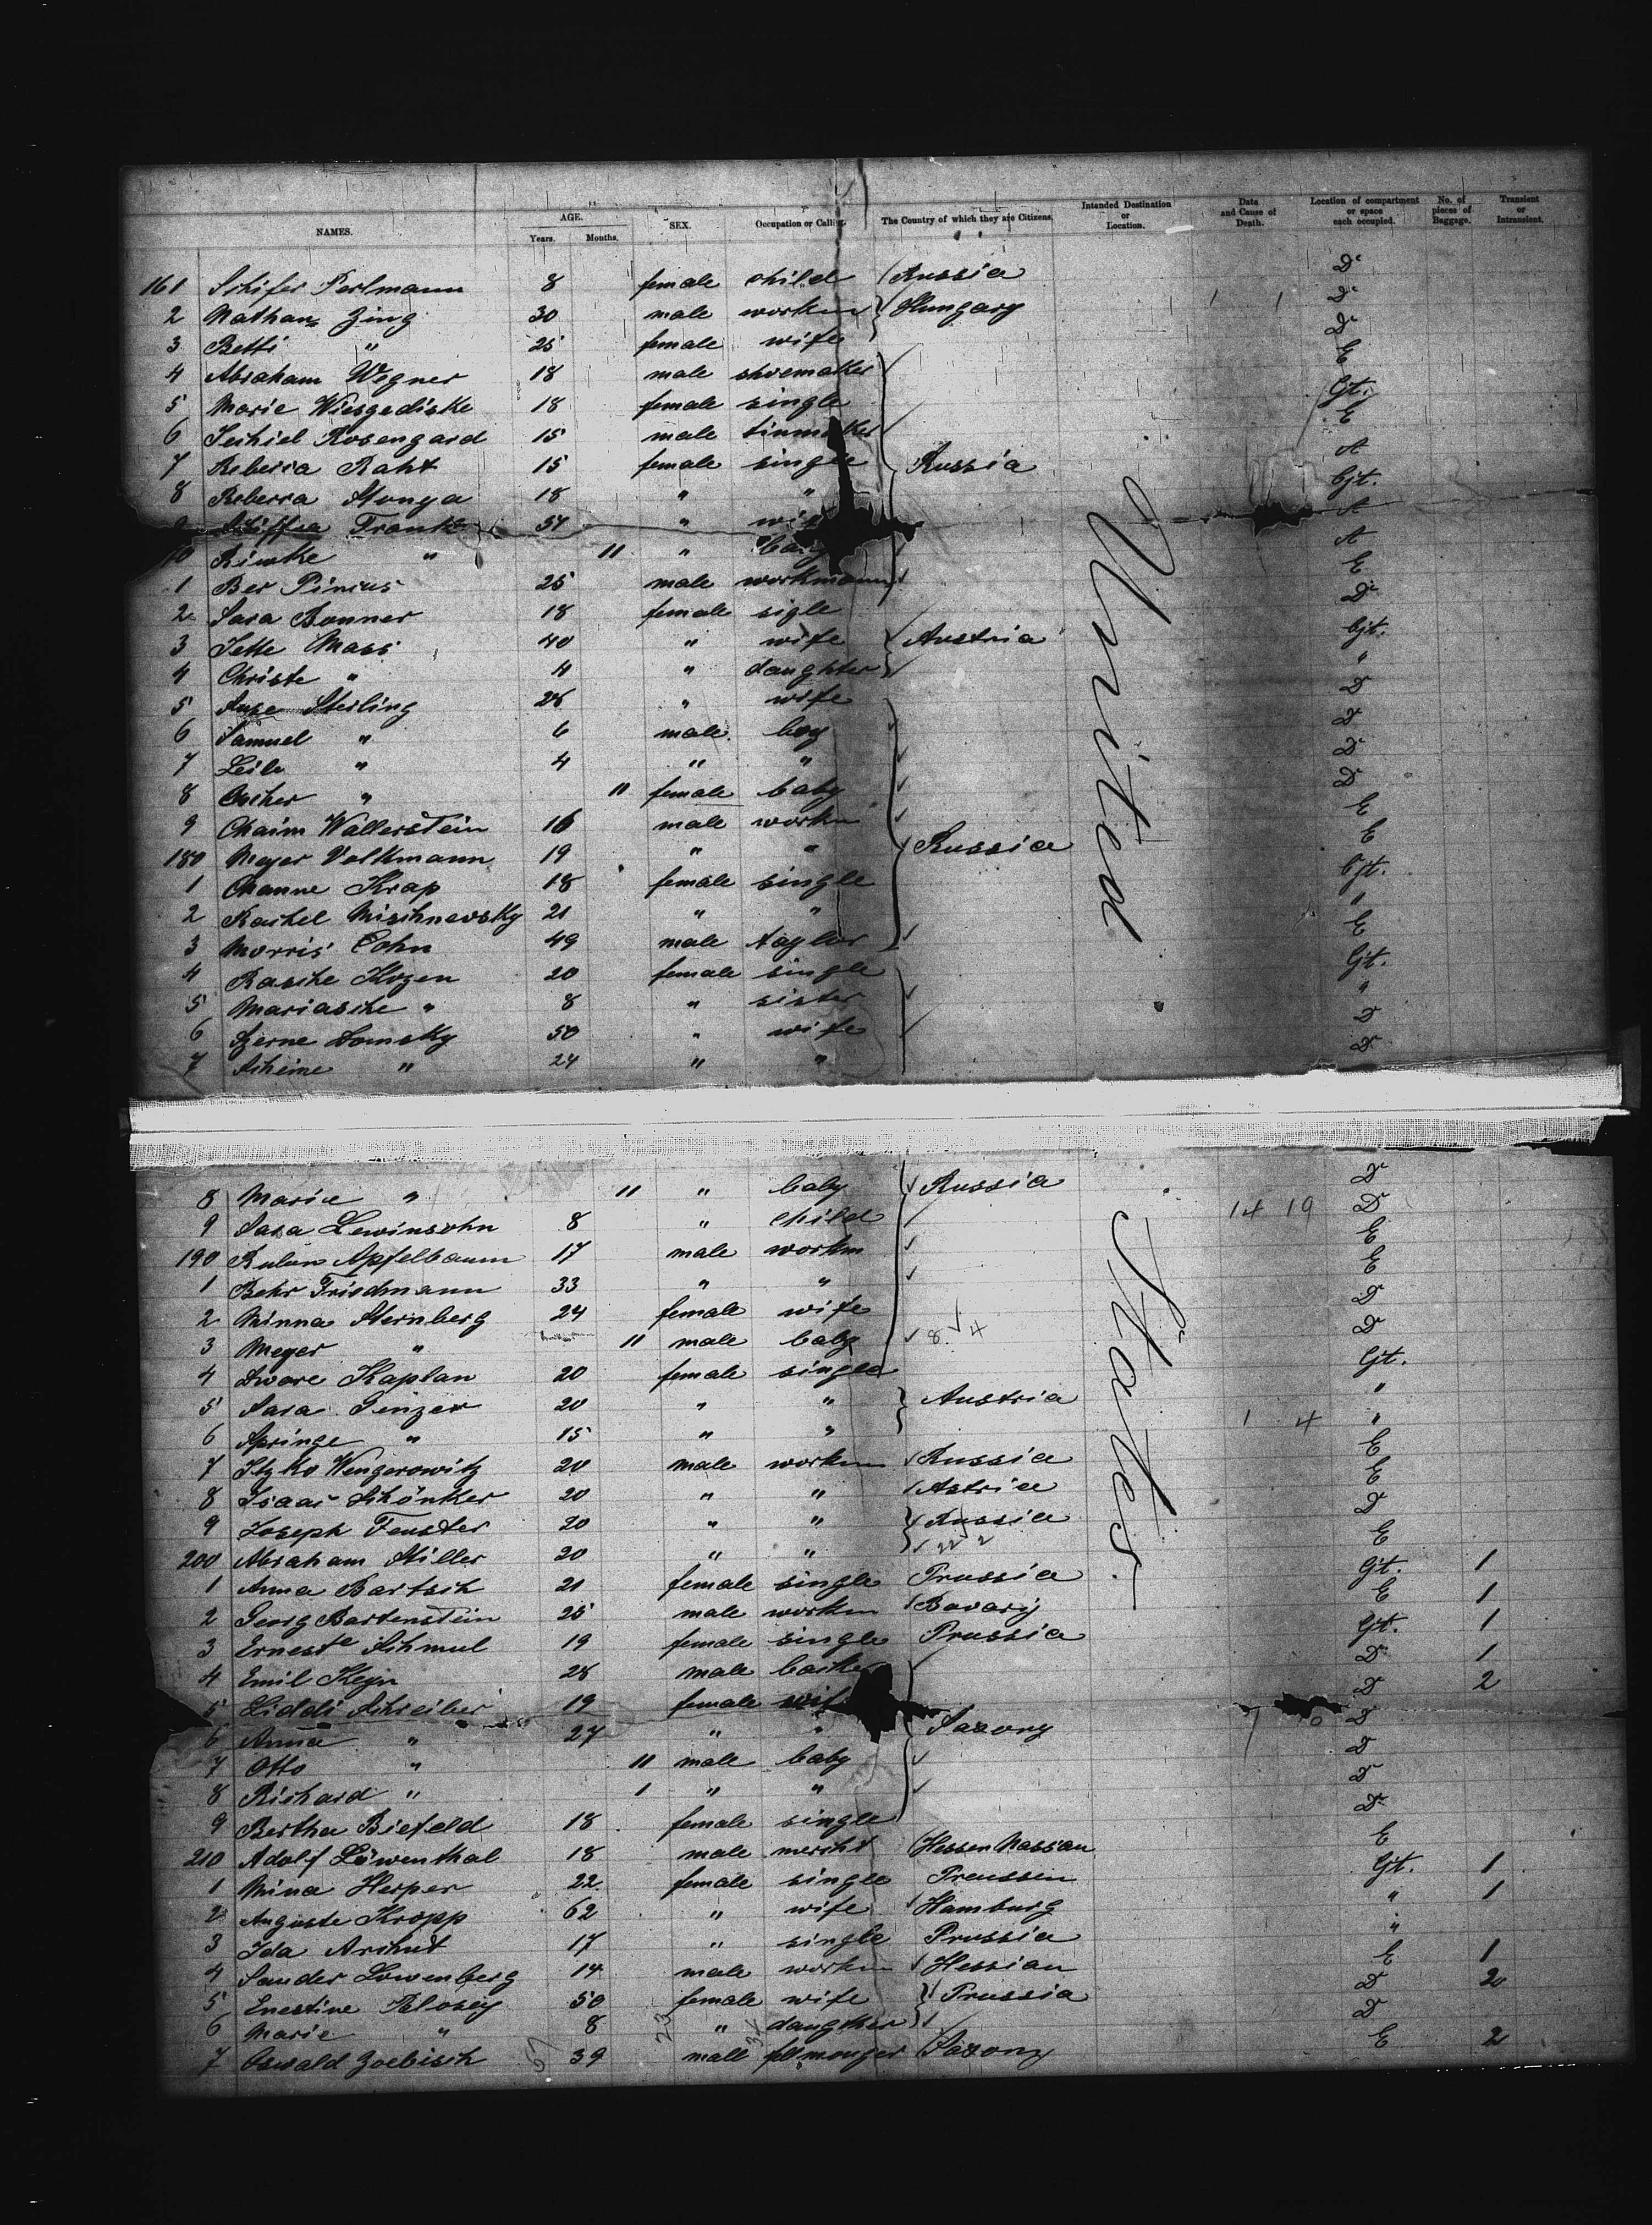 NAMES. AGE. Years. Months. SEX. Occupation or Calling. The Country of which they are Citizens. Intended Destination or Location. Date and Cause of Death. Location of compartment or space each occupied. No. of pieces of Baggage. Transient or Intransient.
161 Schifer Perlmann 8 female child Russia D
2 Nathan Zing 30 male workm Hungary D
3 Betti " 25 female wife D
4 Abraham Wegner 18 male shoemaker E
5 Marie Wiesgediske 18 female single Gjt.
6 Jechiel Rosengard 15 male tinmaker E
7 Rebecca Raht 15 female single Russia A
8 Rebecca Monya 18 " " Gjt.
9 Frank 54 " wife A
10 Rimke " 11 " baby A
1 Ber Pincus 25 male workmann E
2 Sara Bonner 18 female sigle D
3 Jette Mass 40 " wife Austria Gjt.
4 Christe " 4 " daughter "
5 Sterling 26 " wife D
6 Samuel " 6 male boy D
7 Leib " 4 " " D
8 Ascher " 11 female baby D
9 Chaim Wallerstein 16 male workm E
180 Meyer Volkmann 19 " " Russia E
1 Channe Krap 18 female single Gjt.
2 Rachel Mischnevsky 21 " " "
3 Morris Cohn 49 male taylor E
4 Rasche Kozen 20 female single Gjt.
5 Mariasche " 8 " sister "
6 Zerne Domsky 50 " wife D
7 Scheine " 24 " " D
United
8 Marie " 11 " baby Russia D
9 Sara Lewinsohn 8 " child 14 19 D
190 Ruben Apfelbaum 17 male workm E
1 Behr Friedmann 33 " " E
2 Minna Sternberg 24 female wife D
3 Meyer " 11 male baby 8 4 D
4 Dware Kaplan 20 female single Gjt.
5 Sara Ginzer 20 " " Austria "
6 Springe " 15 " " 1 4 "
7 Itzko Wengerowitz 20 male workm Russia E
8 Isaac Schönker 20 " " Astria E
9 Joseph Fenster 20 " " Russia D
200 Abraham Stiller 20 " " 22 2 E
1 Anna Bartsch 21 female single Prussia Gjt. 1
2 Georg Bartenstein 25 male workm Bavary E 1
3 Ernest Schmul 19 female single Prussia Gjt. 1
4 Emil Keyn 28 male backer D 1
5 Liddi Schreiber 19 female wife D 2
6 Anna " 27 " " Saxony D
7 Otto " 11 male baby D
8 Richard " 1 " " D
9 Bertha Biefeld 18 female single D
210 Adolf Löwenthal 18 male mercht Hessen Nassau E
1 Mina Herper 22 female single Preussen Gjt. 1
2 Auguste Kropp 62 " wife Hamburg " 1
3 Ida Arihnt 17 " single Prussia "
4 Sander Lowenberg 14 male workm Hessian E 1
5 Enestine 50 female wife Prussia D 20
6 Marie " 8 " daugther D
7 Oswald Zoebisch 39 mall fellmonger Saxony E 2
States